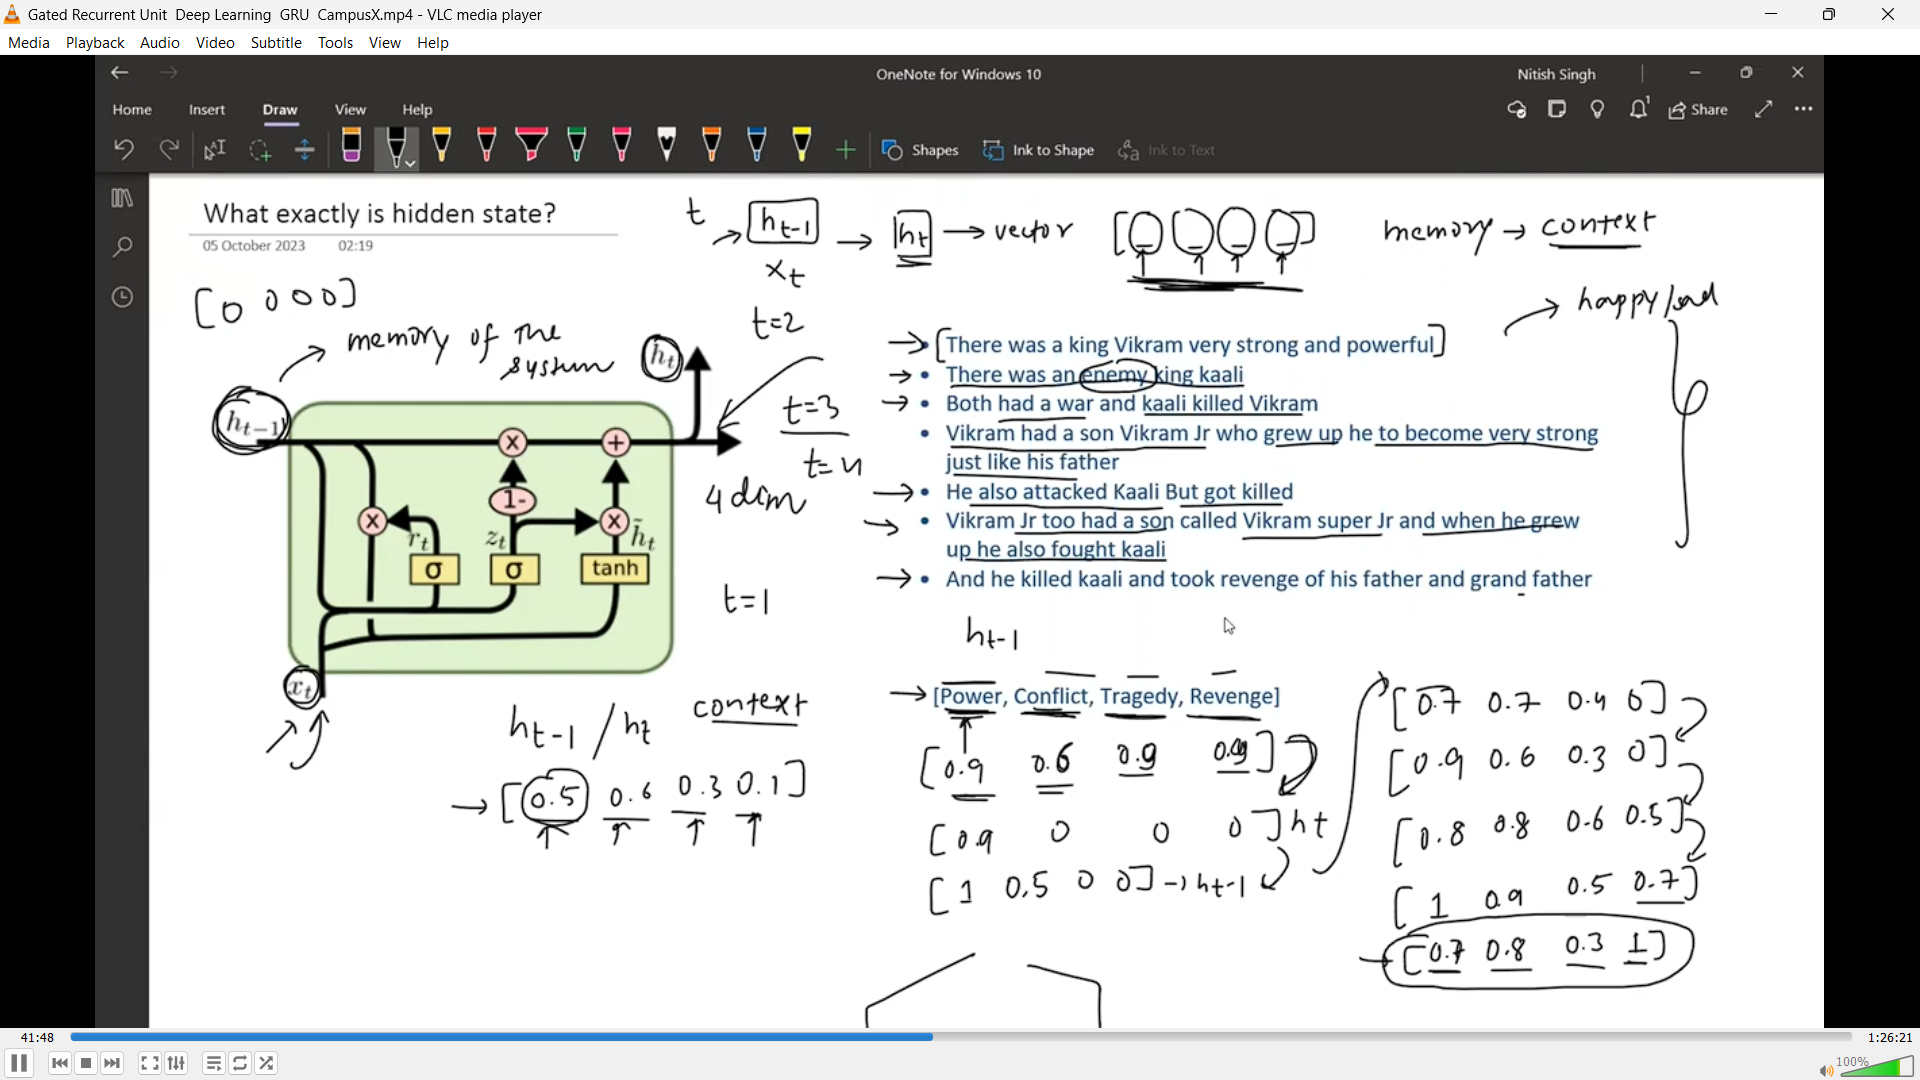 Gated Recurrent Unit Deep Learning GRU CampusX.mp4 - VLC media player
Media Playback Audio Video Subtitle Tools View Help
OneNote for Windows 10
Nitish Singh
Home Insert Draw View Help
Share
Shapes
Ink to Shape
Ink to Text
What exactly is hidden state?
05 October 2023 02:19
t
h t-1 → h t → vector
x t
memory → context
[0 0 0 0]
memory of the system
t=2
happy/sad
h t
• There was a king Vikram very strong and powerful
• There was an enemy king kaali
• Both had a war and kaali killed Vikram
• Vikram had a son Vikram Jr who grew up he to become very strong
just like his father
• He also attacked Kaali But got killed
• Vikram Jr too had a son called Vikram super Jr and when he grew
up he also fought kaali
• And he killed kaali and took revenge of his father and grand father
h t-1
t=3
t=4
4 dim
x +
1-
x x
r t z t h̃ t
σ σ tanh
t=1
x t
h t-1
h t-1 / h t context
→ [0.5 0.6 0.3 0.1]
→ [Power, Conflict, Tragedy, Revenge]
[0.9 0.6 0.9 0.9]
[0.9 0 0 0] h t
[1 0.5 0 0] → h t-1
[0.7 0.7 0.4 0]
[0.9 0.6 0.3 0]
[0.8 0.8 0.6 0.5]
[1 0.9 0.5 0.7]
→ [0.7 0.8 0.3 1]
41:48 1:26:21
100%